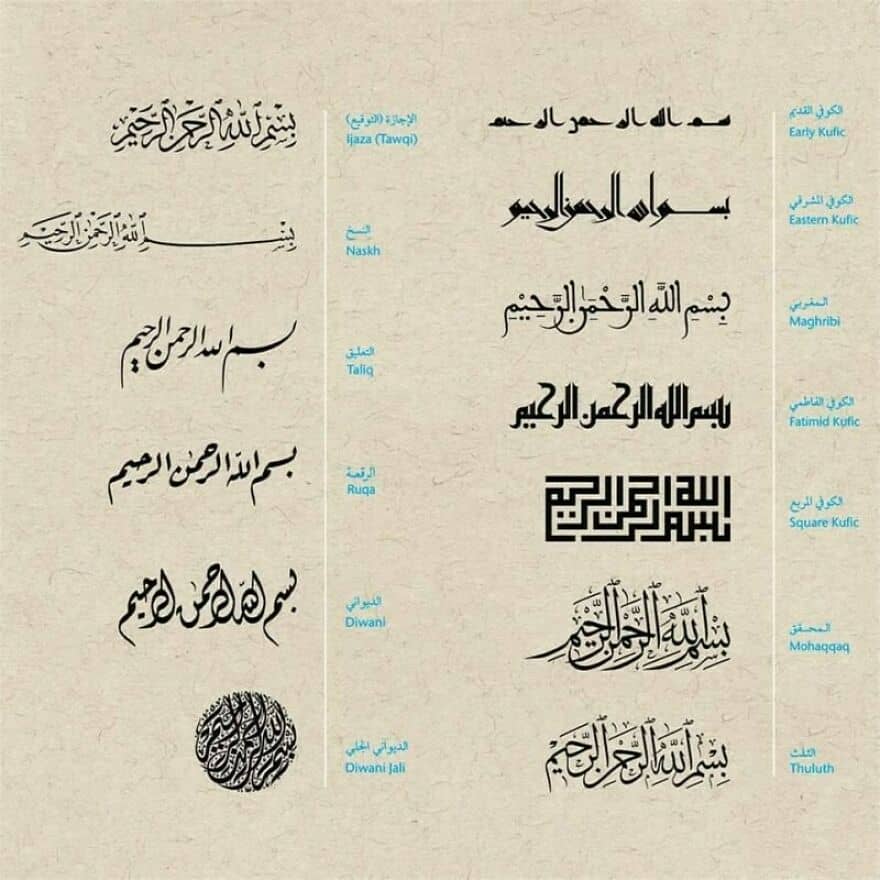 بسم الله الرحمن الرحيم
الإجازة (التوقيع)
Ijaza (Tawqi)
بسم الله الرحمن الرحيم
النسخ
Naskh
بسم الله الرحمن الرحيم
التعليق
Taliq
بسم الله الرحمن الرحيم
الرقعة
Ruqa
بسم الله الرحمن الرحيم
الديواني
Diwani
بسم الله الرحمن الرحيم
الديواني الجلي
Diwani Jali
بسم الله الرحمن الرحيم
الكوفي القديم
Early Kufic
بسم الله الرحمن الرحيم
الكوفي المشرقي
Eastern Kufic
بِسْمِ اللَّهِ الرَّحْمَٰنِ الرَّحِيمِ
المغربي
Maghribi
بسم الله الرحمن الرحيم
الكوفي الفاطمي
Fatimid Kufic
بسم الله الرحمن الرحيم
الكوفي المربع
Square Kufic
بِسْمِ اللَّهِ الرَّحْمَٰنِ الرَّحِيمِ
المحقق
Mohaqqaq
بِسْمِ اللَّهِ الرَّحْمَٰنِ الرَّحِيمِ
الثلث
Thuluth